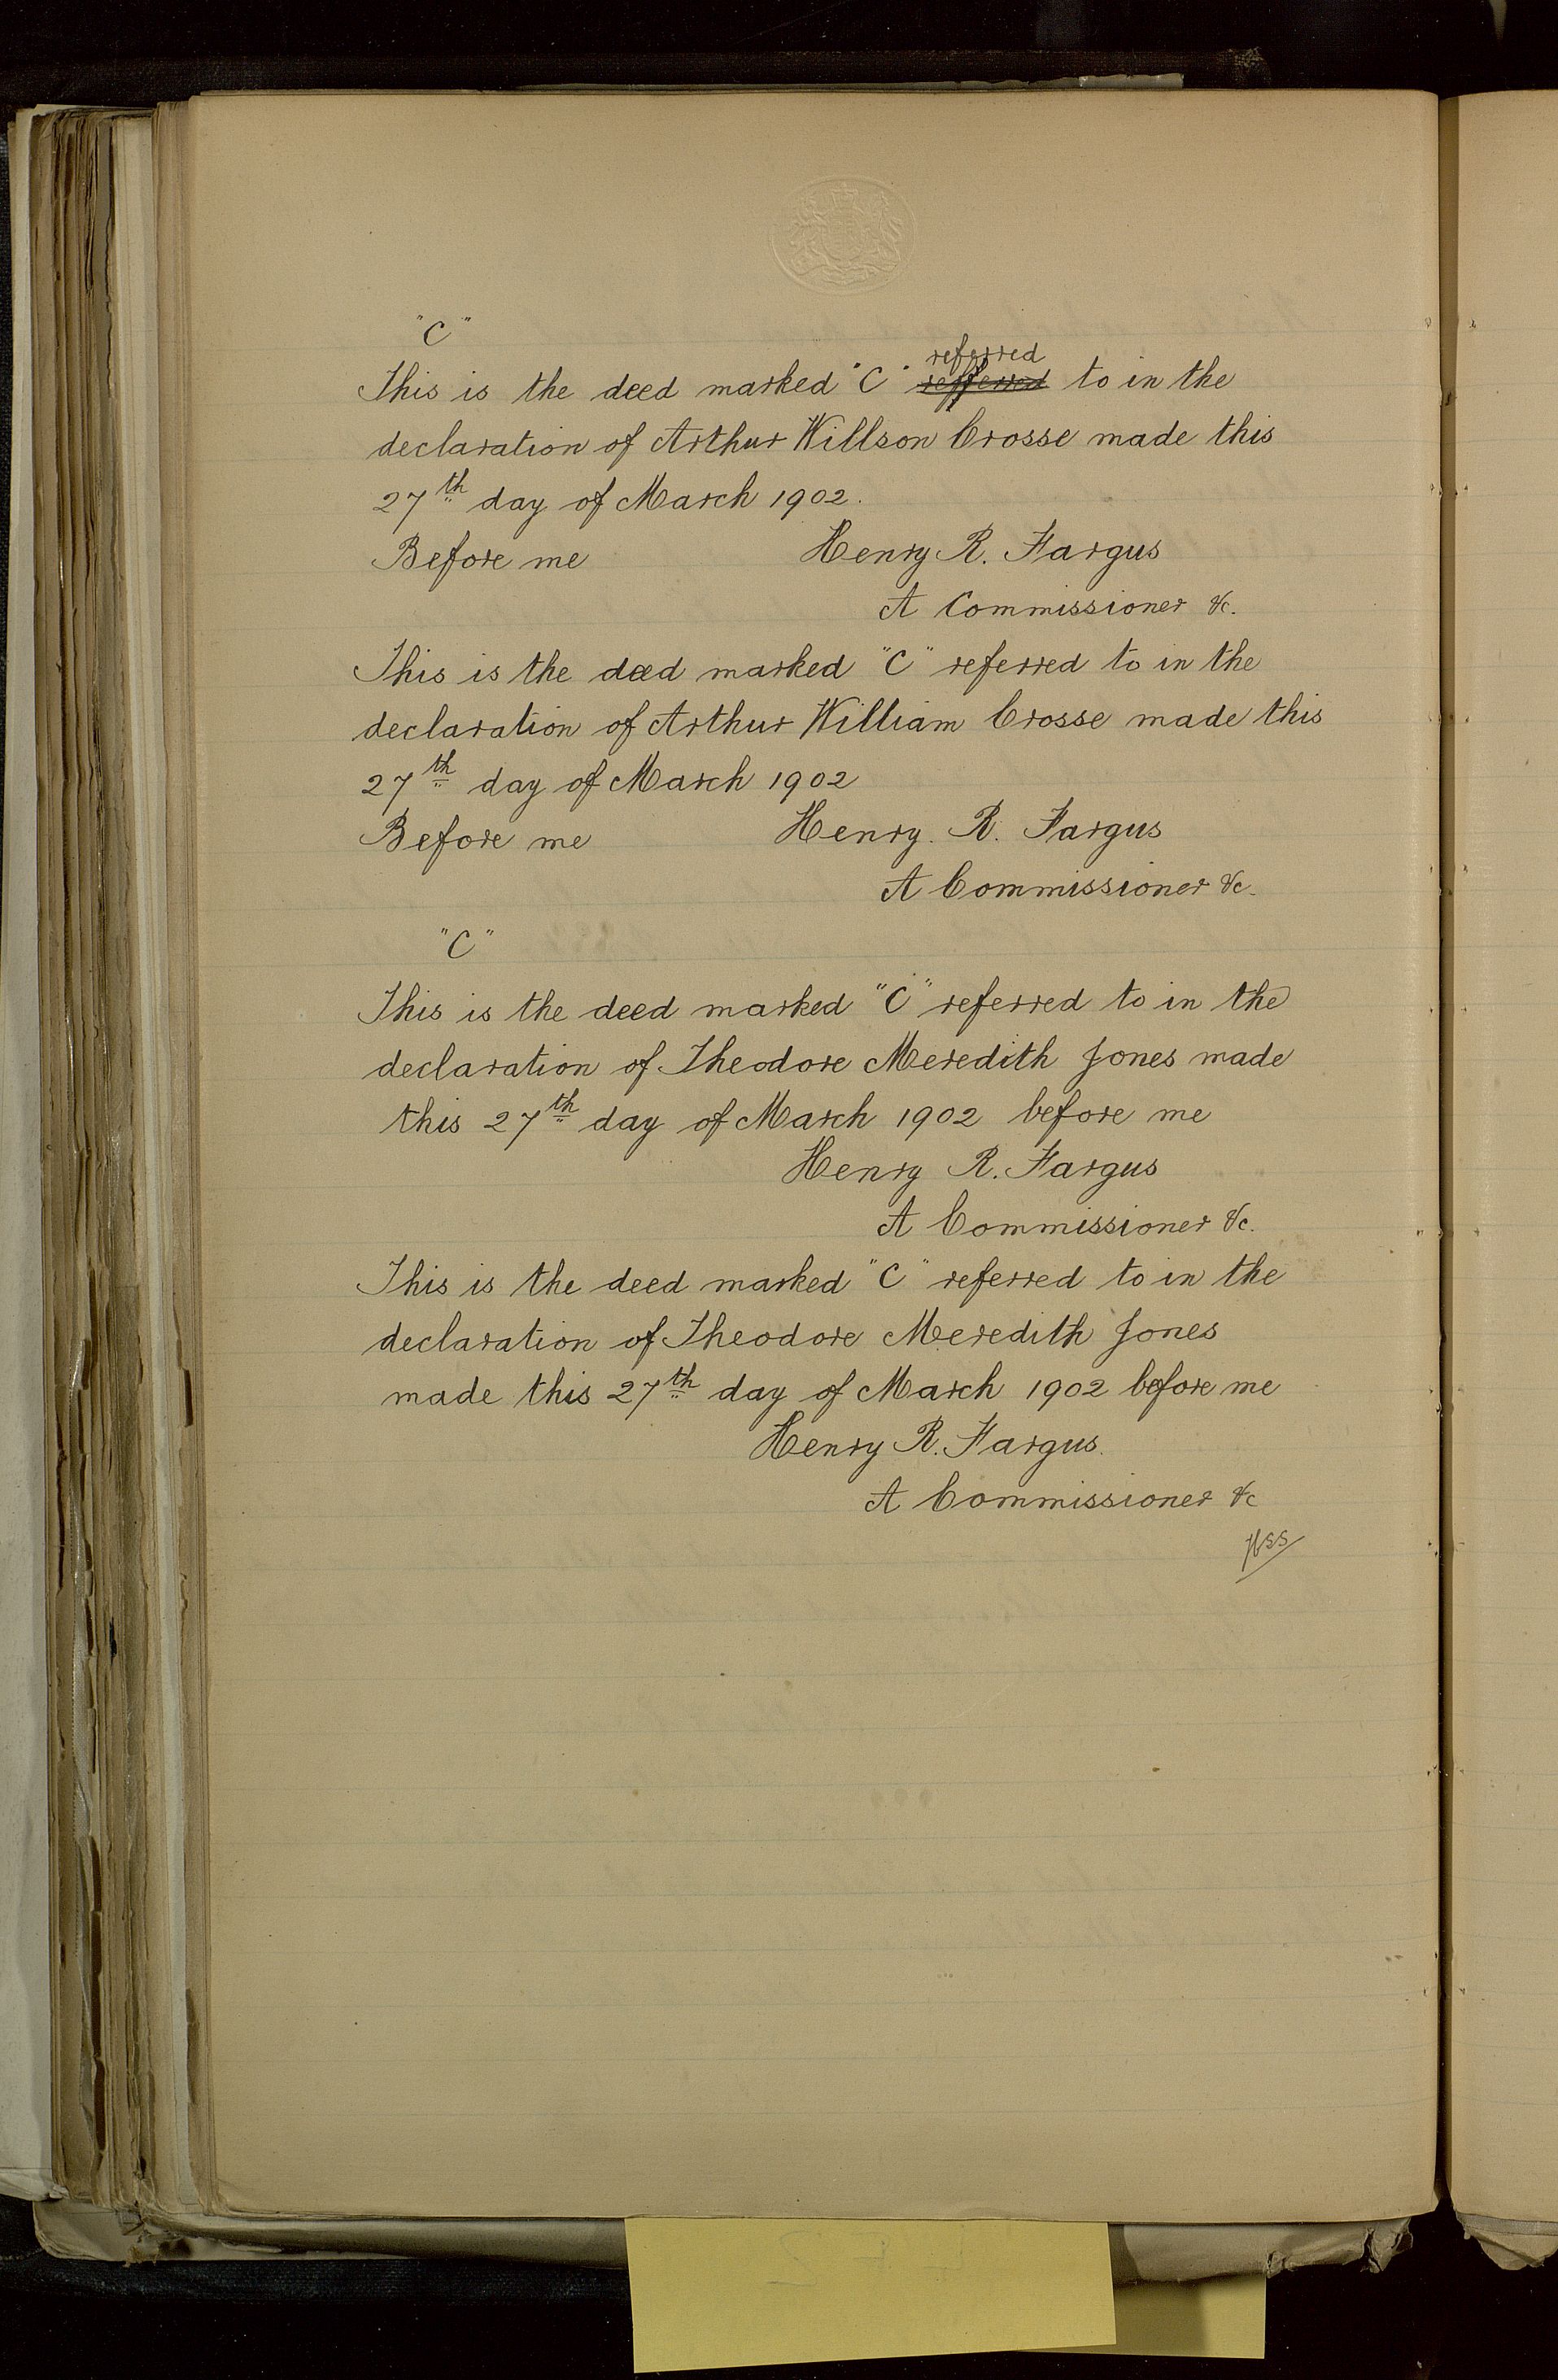 "C"
This is the deed marked "C" referred refferred to in the
declaration of Arthur Willson Crosse made this
27th day of March 1902.
Before me Henry R. Fargus
A Commissioner &c.
This is the deed marked "C" referred to in the
declaration of Arthur William Crosse made this
27th day of March 1902
Before me Henry. R. Fargus
A Commissioner &c.
"C"
This is the deed marked "C" referred to in the
declaration of Theodore Meredith Jones made
this 27th day of March 1902 before me
Henry R. Fargus
A Commissioner &c.
This is the deed marked "C" referred to in the
declaration of Theodore Meredith Jones
made this 27th day of March 1902 before me
Henry R. Fargus.
A Commissioner &c